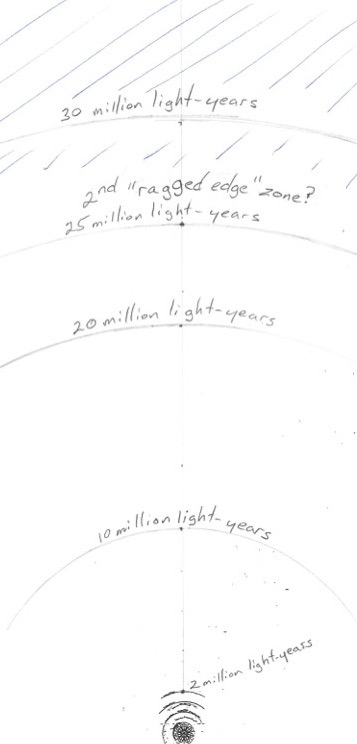 30 million light-years
2nd "ragged edge" zone?
25 million light-years
20 million light-years
10 million light-years
2 million light-years